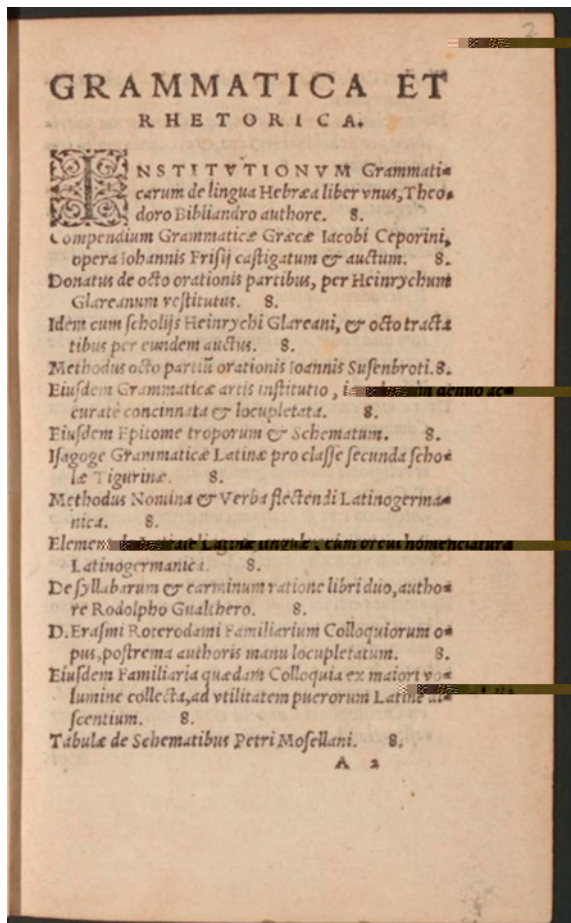 2
GRAMMATICA ET
RHETORICA.
INSTITVTIONVM Grammati⸗
carum de lingua Hebræa liber vnus, Theo⸗
doro Bibliandro authore. 8.
Compendium Grammaticæ Græcæ Iacobi Ceporini,
opera Iohannis Frisij castigatum & auctum. 8.
Donatus de octo orationis partibus, per Heinrychum
Glareanum restitutus. 8.
Idem cum scholijs Heinrychi Glareani, & octo tracta
tibus per eundem auctus. 8.
Methodus octo partiū orationis Ioannis Susenbroti. 8.
Eiusdem Grammaticæ artis institutio, denuo ac⸗
curatè concinnata & locupletata. 8.
Eiusdem Epitome troporum & Schematum. 8.
Isagoge Grammaticæ Latinæ pro classe secunda scho⸗
læ Tigurinæ. 8.
Methodus Nomina & Verba flectendi Latinogerma⸗
nica. 8.
Latinæ linguæ, cum breui nomenclatura
Latinogermanica. 8.
De syllabarum & carminum ratione libri duo, autho⸗
re Rodolpho Gualthero. 8.
D. Erasmi Roterodami Familiarium Colloquiorum o⸗
pus, postrema authoris manu locupletatum. 8.
Eiusdem Familiaria quædam Colloquia ex maiori vo⸗
lumine collecta, ad vtilitatem puerorum Latinè di⸗
scentium. 8.
Tabulæ de Schematibus Petri Mosellani. 8.
A 2